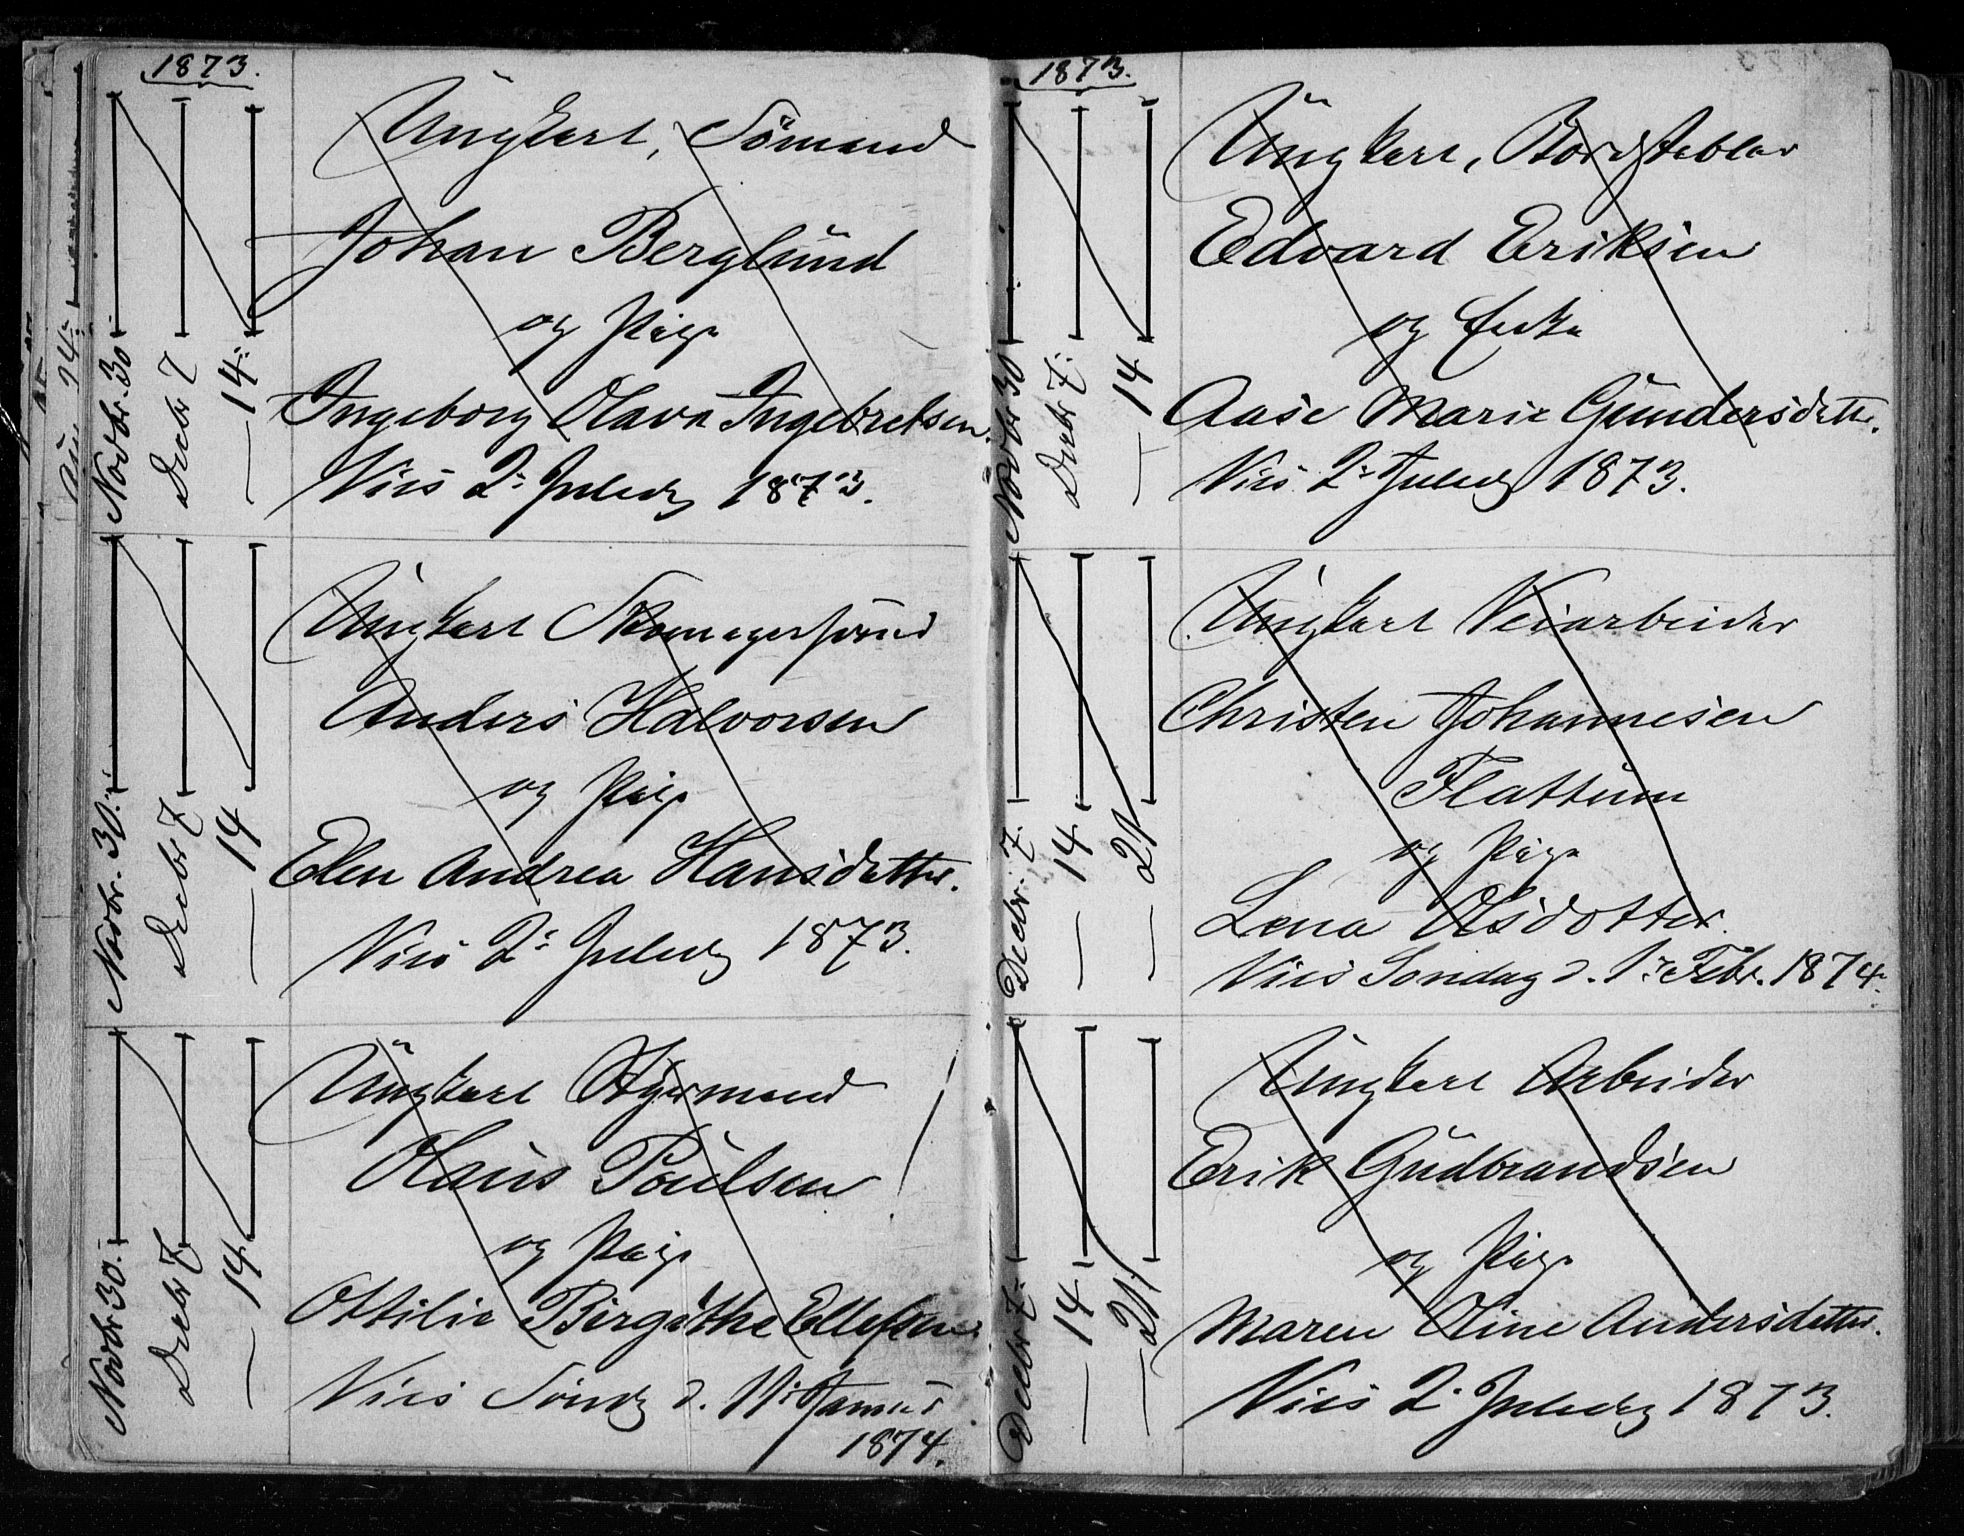 1873.
Novbr. 30
Decbr 7
— 14.
Ungkarl, Sömand
Johan Berglund
og Pige
Ingeborg Olava Ingebretsen.
Vies 2: Juledg 1873.
Novbr. 30.
Decbr 7
— 14
Ungkarl Skomagersvend
Anders Halvorsen
og Pige
Elen Andrea Hansdatter.
Vies 2: Juledg 1873.
Novbr 30.
Decbr 7.
— 14.
Ungkarl Styrmand
Olaus Poulsen
og Pige
Ottilie Birgithe Ellefsen
Vies Söndg d.
1874.
1873.
Novbr 30
Decbr 7.
— 14
Ungkarl, Bordstabler
Edvard Eriksen
og Enke
Aase Marie Gundersdatter.
Vies 2: Juledg 1873.
Decbr. 7.
— 14.
— 21
Ungkarl Veiarbeider
Christen Johannesen
Flattum
og Pige
Lena Olsdotter.
Vies Söndag d. 1: Febr. 1874.
Decbr 7.
— 14.
— 21.
Ungkarl Arbeider
Erik Gudbrandsen
og Pige
Maren Oline Andersdatter.
Vies 2. Juledg 1873.